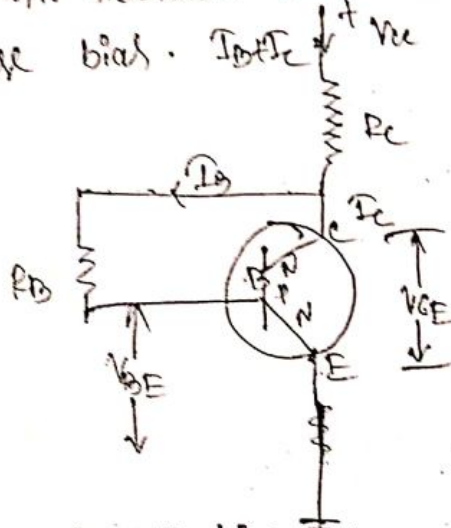 bias. IB+IC
+ VCC
RC
IB
IC
C
RB
B
N
P
N
VCE
VBE
E